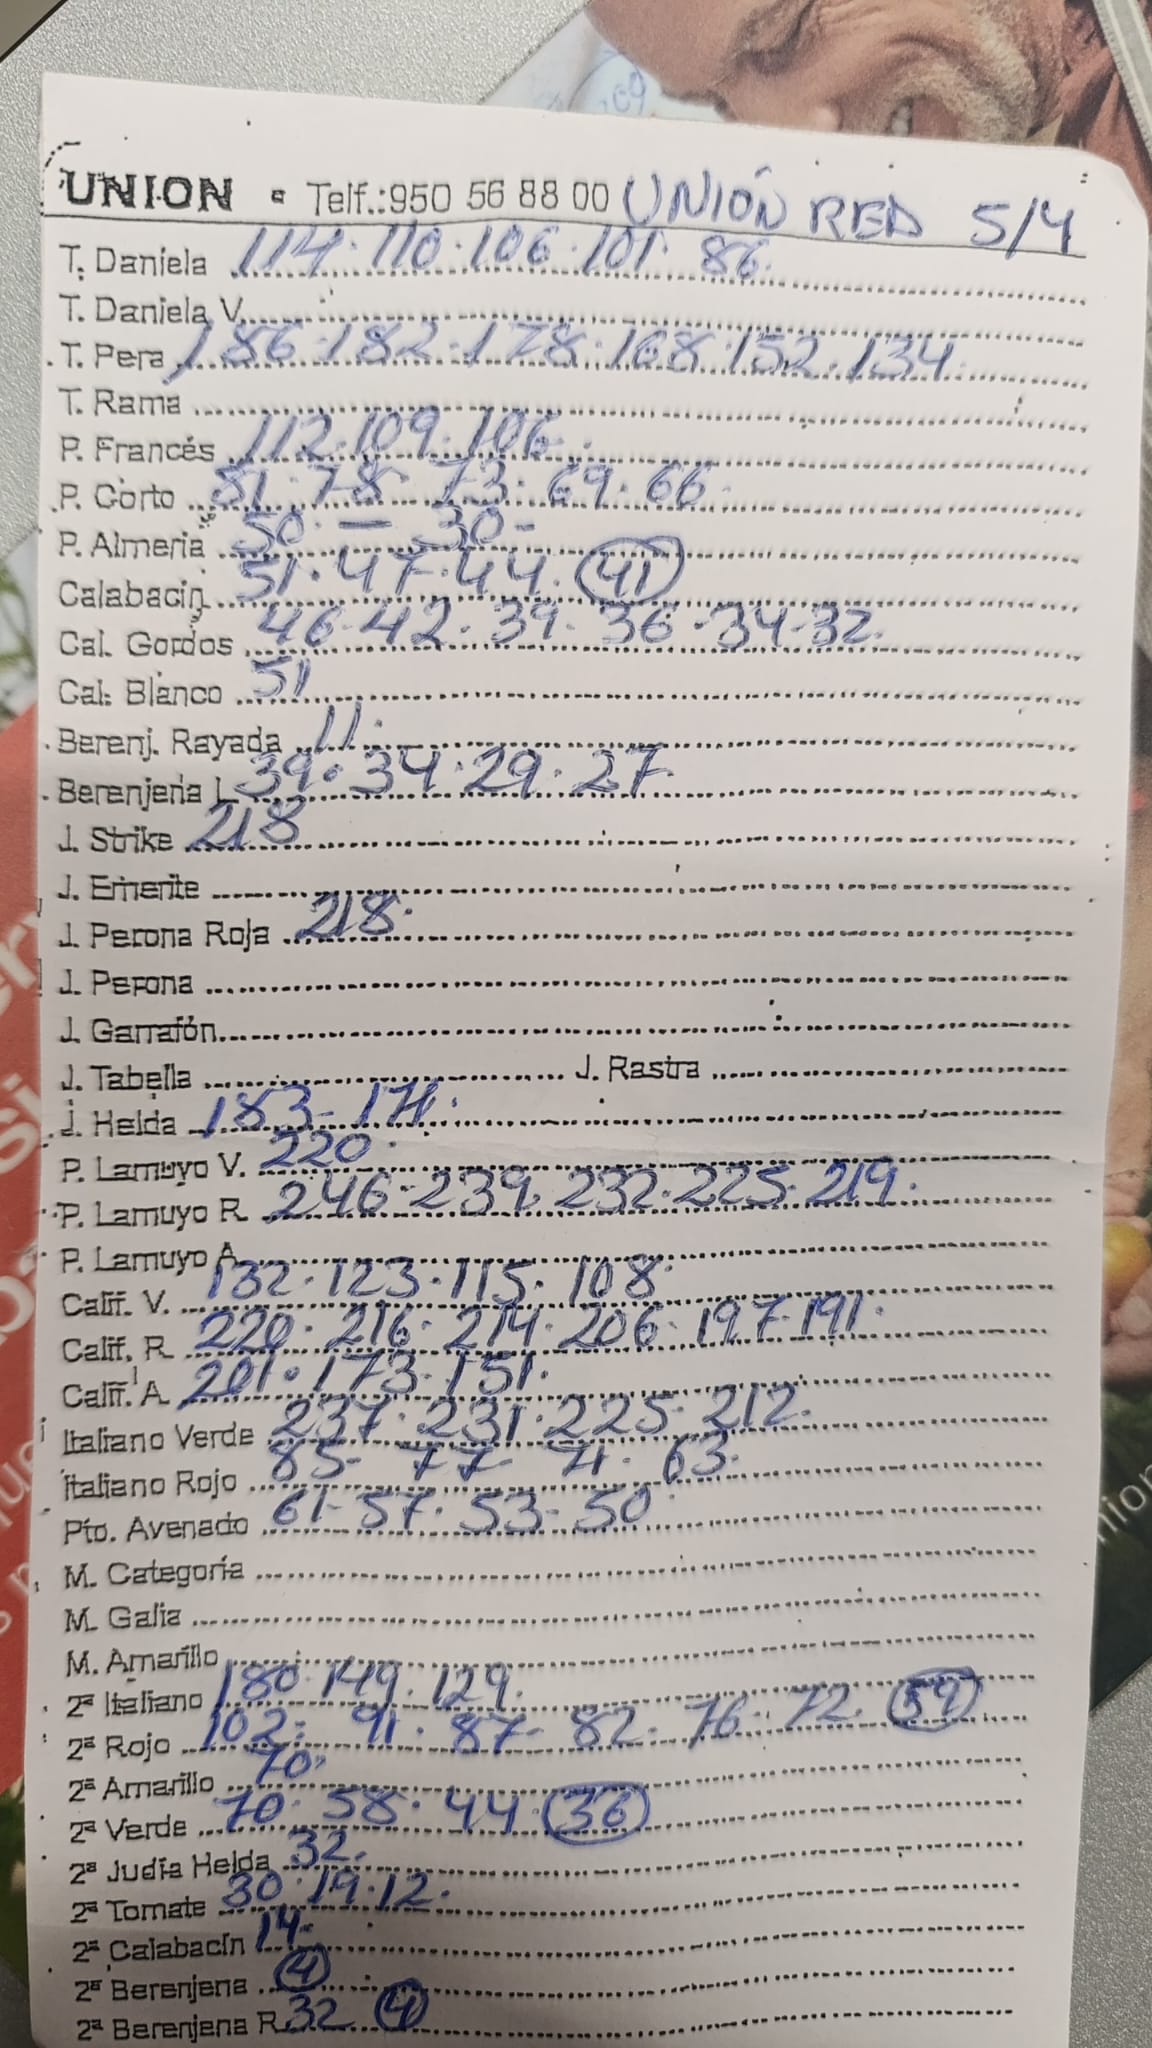 UNION • Telf.:950 56 88 00 UNIÓN RED 5/4
T. Daniela 114·110·106·101·86·
T. Daniela V.
T. Pera 186·182·178·168·152·134
T. Rama
P. Francés 112·109·106·
P. Corto 81·78·73·69·66·
P. Almeria 50·— 30-
Calabacín 51·47·44·(41)
Cal. Gordos 46·42·39·36·34·32·
Cal. Blanco 51
Berenj. Rayada 11·
Berenjena L 39·34·29·27
J. Strike 218
J. Emerite
J. Perona Roja 218·
J. Perona
J. Garrafón
J. Tabella J. Rastra
J. Helda 183-171·
P. Lamuyo V. 220·
P. Lamuyo R 246-239·232·225·219·
P. Lamuyo A
Calif. V. 132·123·115·108
Calif. R 220·216·214·206·197·191·
Calif. A 201·173·151·
Italiano Verde 237·231·225·212·
Italiano Rojo 85-77-71·63·
Pto. Avenado 61-57·53-50
M. Categoría
M. Galia
M. Amarillo
2ª Italiano 180·149·129·
2ª Rojo 102·91·87-82·76·72·(59)
2ª Amarillo 70·
2ª Verde 70·58·44·(36)
2ª Judía Helda 32·
2ª Tomate 30·19·12·
2ª Calabacín 14-
2ª Berenjena (4)
2ª Berenjena R 32 (4)